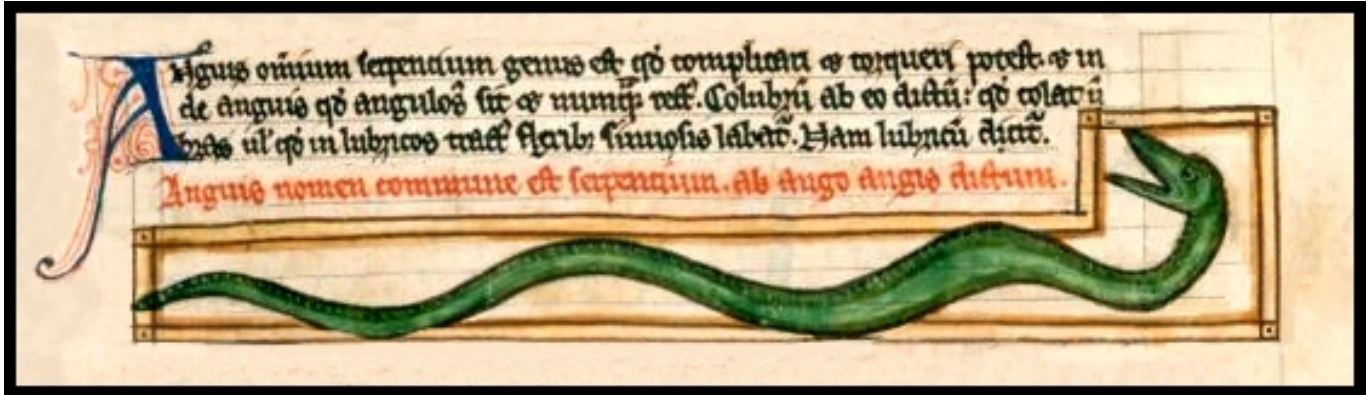 Anguis om̄ium serpentium genus est qd̄ complicari ⁊ torqueri potest. ⁊ in
de anguis qd̄ angulosꝰ sit ⁊ numq̄ rectꝰ. Colubrū ab eo dictū: qd̄ colat ū
bras ul' qd̄ in lubricos tractꝰ flexibꝫ sinuosis labat̄. Nam lubricū dicit̄.
Anguis nomen commune est serpentium. ab ango angis dictum.